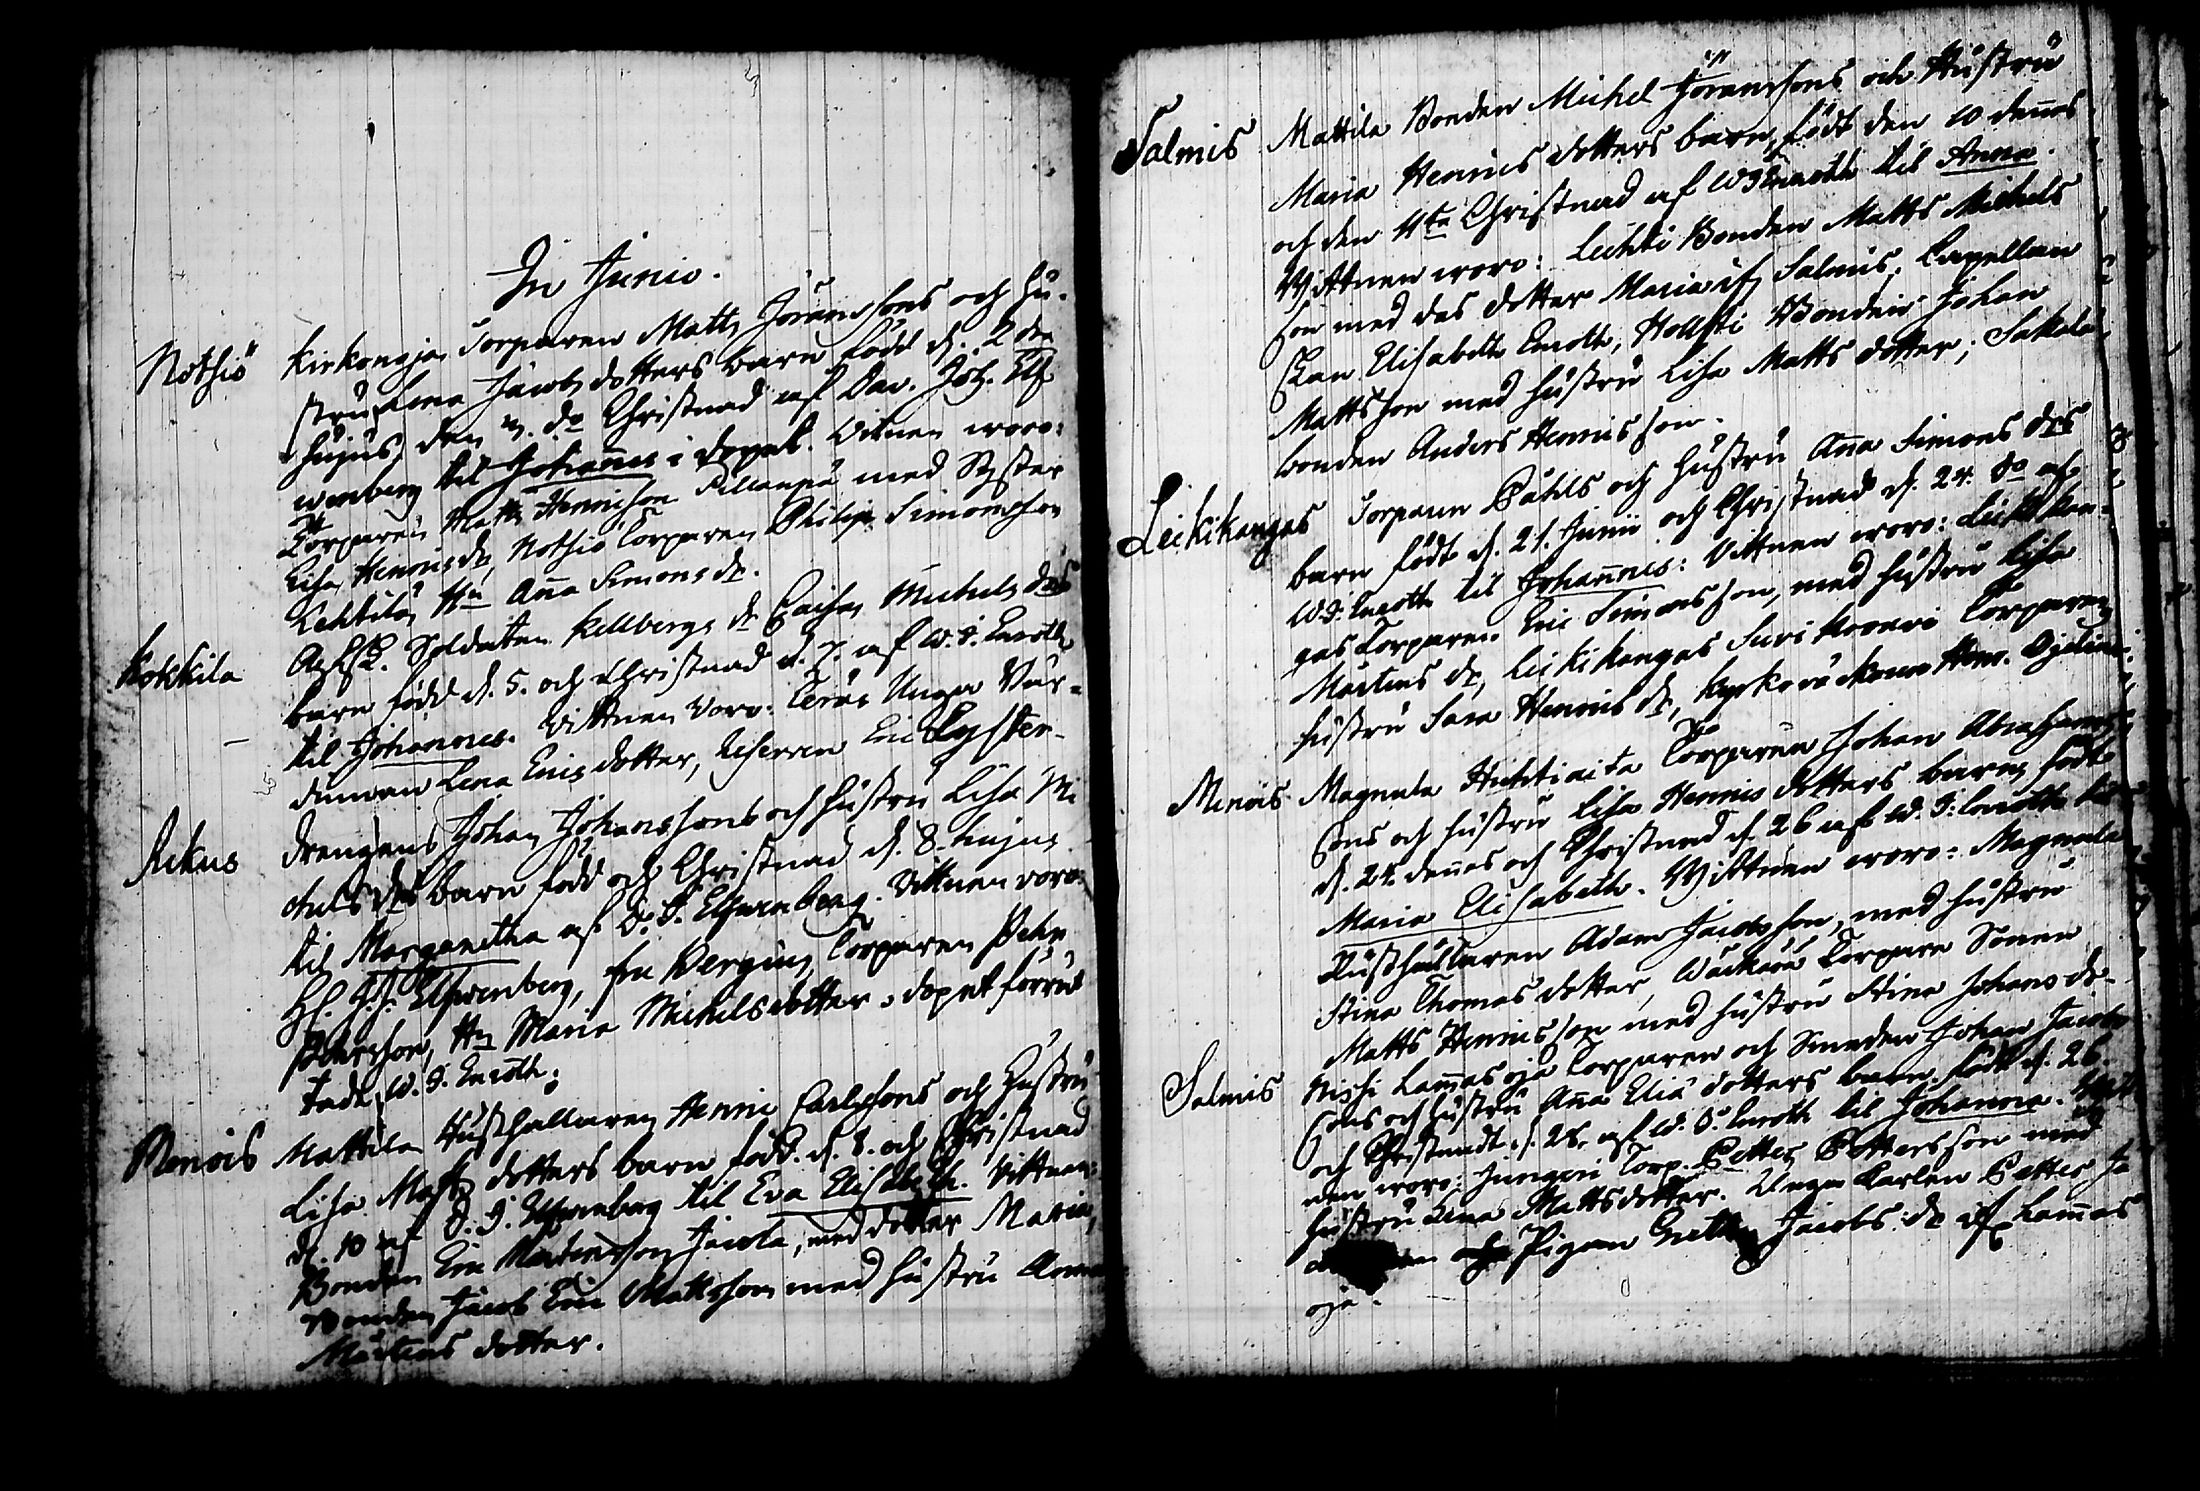 In Junio.
Notsiö Kirkonoja Torparen Matts Jöranssons och hu-
stru Lena Jacobs dotters barn född d. 2 dr
hujus, den 3. do Christnad af Dav. Joh. Elf
wenberg til Johannes i dopet. Vitnen woro:
Torparen Matts Henrisson med Syster
Lisa Henrics dr, Notsiö Torparen Philip Simonsson
Lehtilä Hu Ana Simons dr.
Kokkila Soldaten Kellbergs Caisa Michels drs
barn född d. 5. och Christnad d. 7. af W. I. Enroth
til Johannes. Vittnen voro: Unga Vär-
dinnan Lena Erics dotter, Eric Cyster-
Rekus Drengens Johan Johanssons och hustru Lisa Mi
chels drs barn född och Christnad d. 8. hujus
til Margaretha af D. I. Elfwenberg. Vittnen voro:
Elfwenberg, fru Bergius, Torparen Pehr
Pehrsson, Hu Maria Michelsdotter, dopet förrät
tade W. I. Enroth.
Menois Mattila Rusthållaren Henric Carlssons och Hustru
Lisa Matts dotters barn född. d. 8. och Christnad
d. 10 af D. I. Elfwenberg til Eva Elisabeth. Vittnen:
Bonden Eric Mårtensson Jacola, med dotter Maria,
Bonden Jacob Eric Mattsson med hustru Anna
Mårtens dotter.
Salmis Mattila Bonden Michel Jöranssons och Hustru
Maria Henrics dotters barn, födt den 10 denes
och den 11te Christnad af W I Enroth til Anna.
Wittnen woro: Lechti Bonden Matts Michels
son med das dotter Maria if Salmis, Capellan
skan Elisabeth Enroth, Hollsti Bonden Johan
Mattsson med hustru Lisa Matts dotter; Sakola
bonden Anders Henricsson.
Leikikangas Torparen Påhls och hustru Ana Simons drs
barn födt d. 21. Junii och Christnad d. 24. do af
W. I. Enroth til Johannes: Vittnen woro: Leikikan-
gas Torparen Eric Simonsson, med hustru Lisa
Mårtens dr, Leikikangas Suvikoorvi Torparens
hustru Sara Henrics dr, Kyrkovä
Menois Magnula Huhtiaita Torparen Johan Abrahams
sons och hustru Lisa Henrics dotters barn födt
d. 24. denes och Christnad d. 26 af W. I. Enroth til
Maria Elisabeth. Wittnen woro: Magnula
Rusthållaren Adam Jacobsson, med hustru
Stina Thomas dotter, Torpare Sonen
Matts Henricsson med hustru Stina Johans dr.
Salmis Nissi Lamasoja Torparen och Smeden Johan Jacobs
sons och hustru Ana Elia dotters barn födt d. 26.
och Christnadt d. 28. af W. I. Enroth til Johanna. Witt
nen woro: Jungeri Torp. Petter Pettersson med
hustru Lena Mattsdotter. Unga Karlen Petter Ja
Pigan Greta Jacobs dr if Lamas
oja.